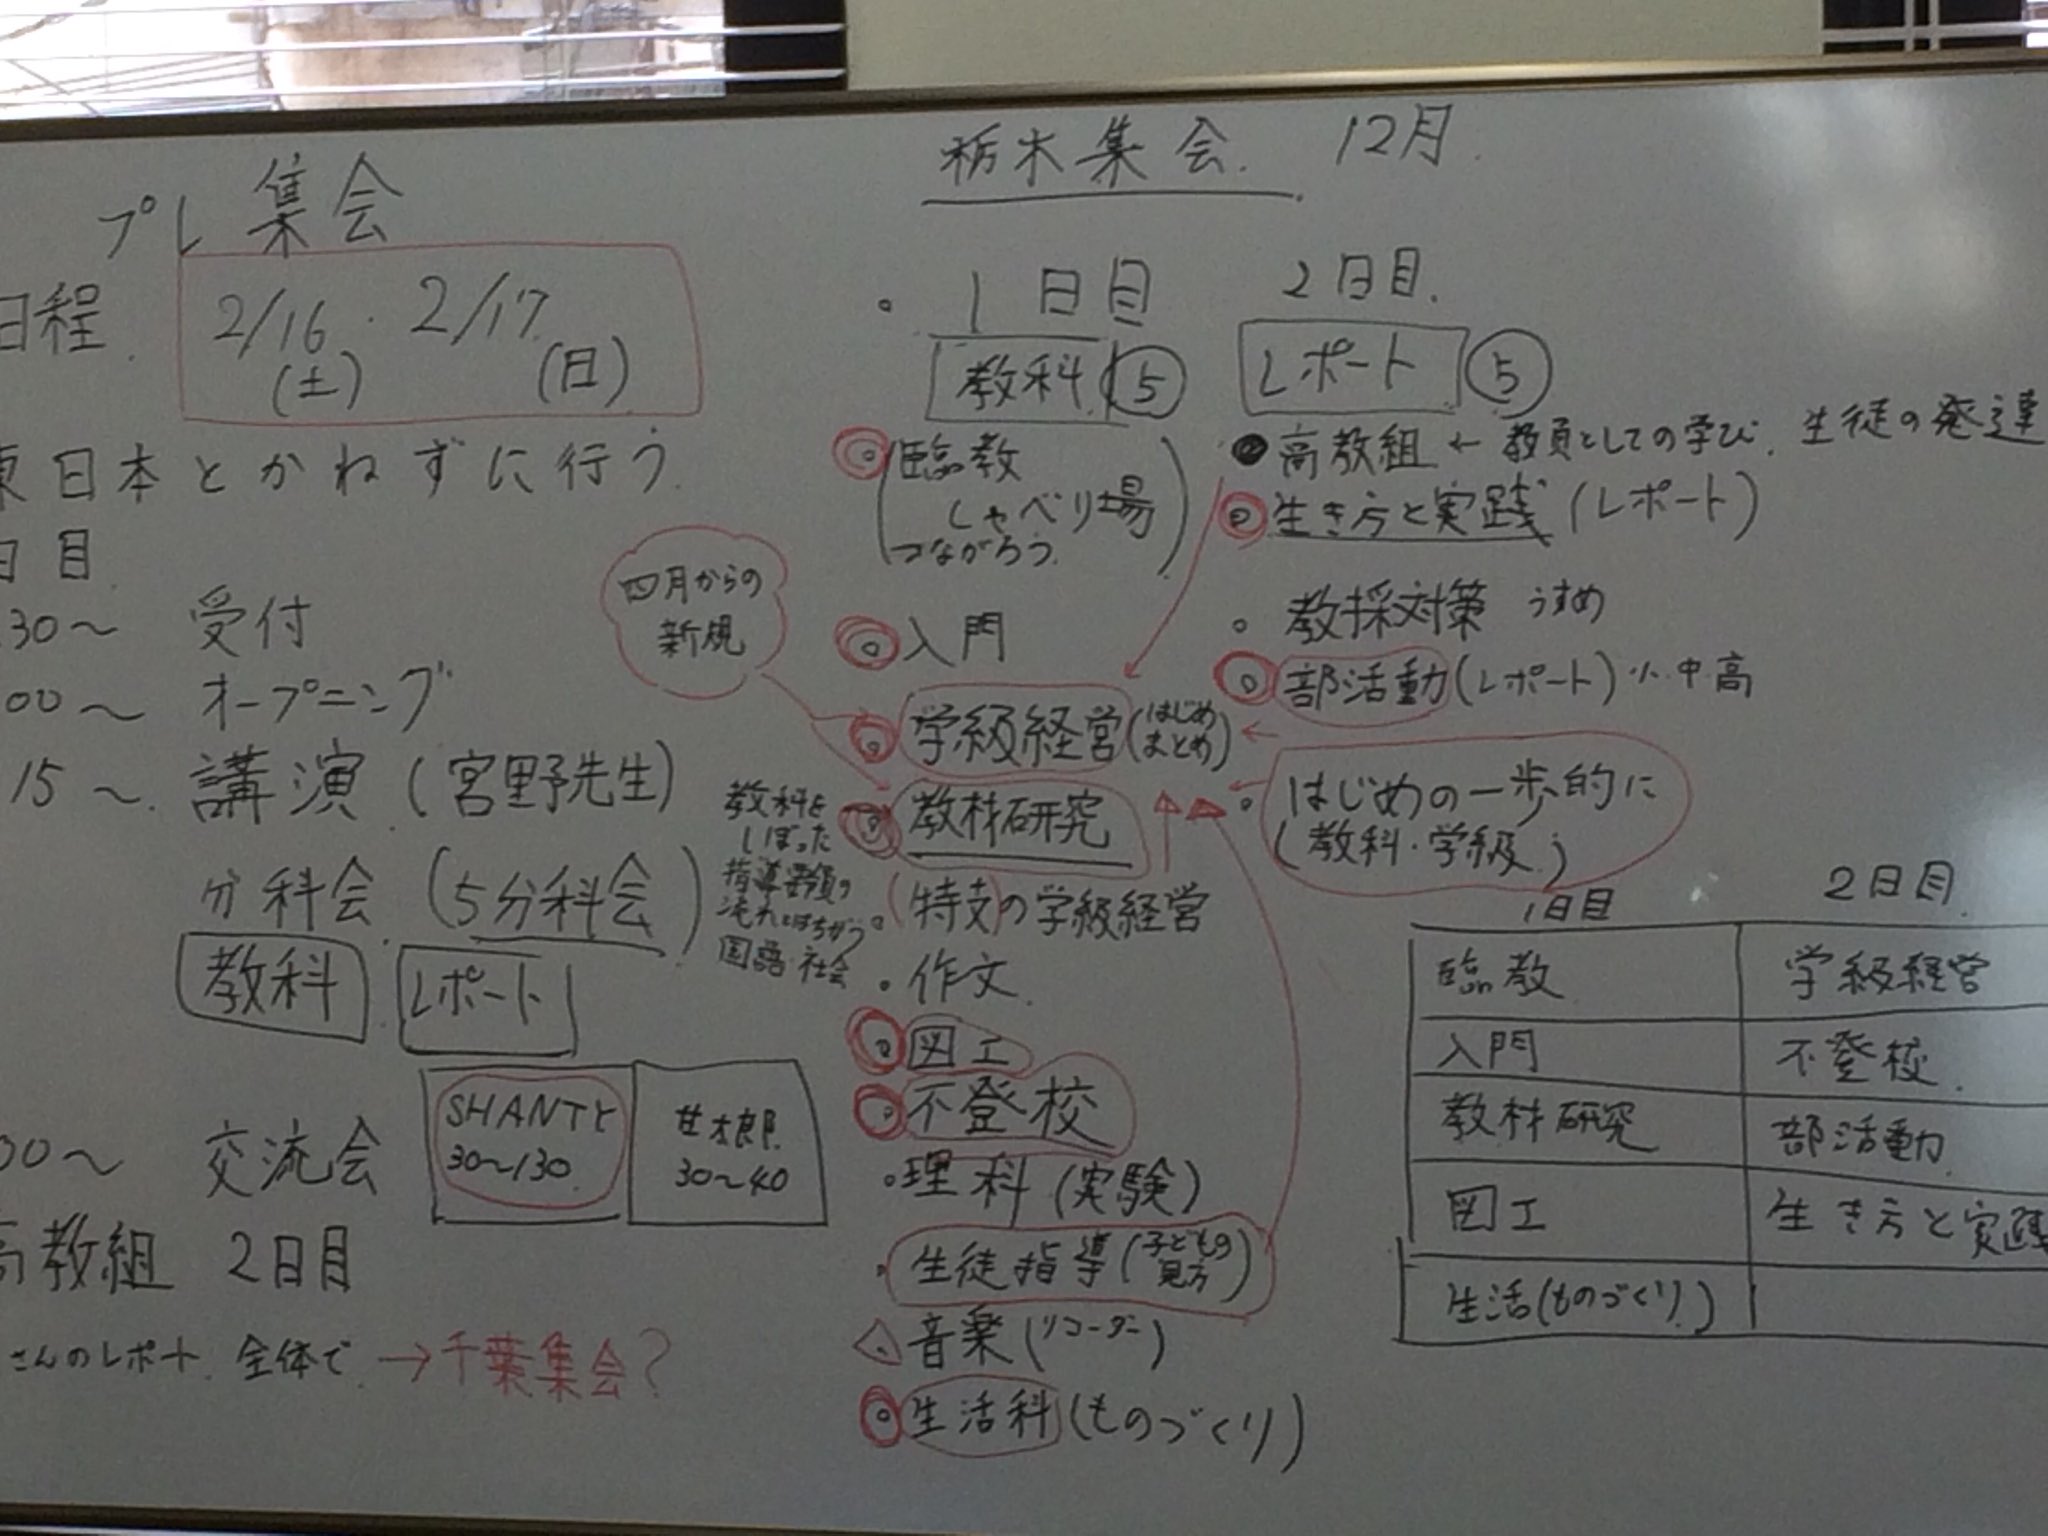 プレ集会
日程
2/16(土)・2/17(日)
東日本とかねずに行う
日目
30〜 受付
00〜 オープニング
15〜 講演(宮野先生)
分科会(5分科会)
教科 レポート
00〜 交流会
SHANTY 30〜130
甘太郎 30〜40
高教組 2日目
さんのレポート 全体で →千葉集会?
栃木集会 12月
1日目
教科 5
臨教
しゃべり場
つながろう
入門
四月からの
新規
学級経営(はじめ まとめ)
教材研究
教科を
しぼった
指導要領の
流れとはちがう
国語・社会
(特支)の学級経営
作文
図工
不登校
理科(実験)
生徒指導(子どもの見方)
音楽(リコーダー)
生活科(ものづくり)
2日目
レポート 5
高教組 ← 教員としての学び. 生徒の発達
生き方と実践(レポート)
教採対策 うすめ
部活動(レポート)小.中.高
はじめの一歩的に
(教科・学級)
1日目 2日目
臨教 学級経営
入門 不登校
教材研究 部活動
図工 生き方と実践
生活(ものづくり)